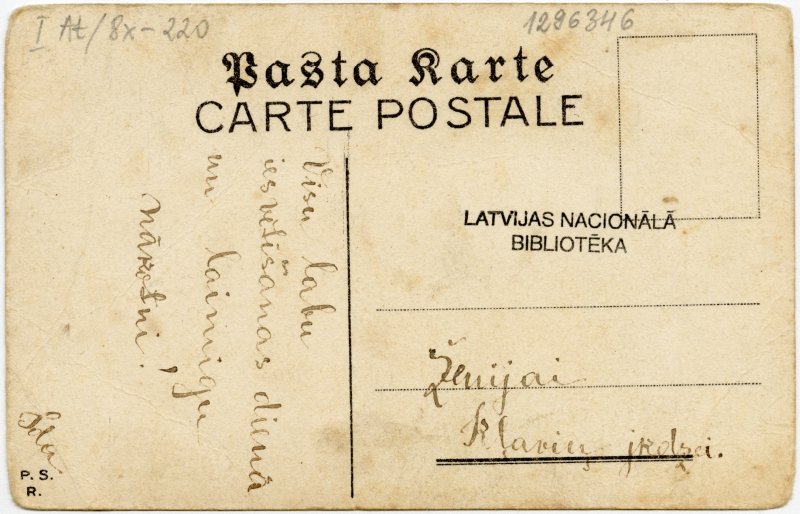 I At/8x-220
1296346
Pasta Karte
CARTE POSTALE
LATVIJAS NACIONĀLĀ
BIBLIOTĒKA
Visu labu
iesvētīšanas dienā
un laimīgu
nākotni!
Ženijai
Kļaviņ jkdzei.
P. S.
R.